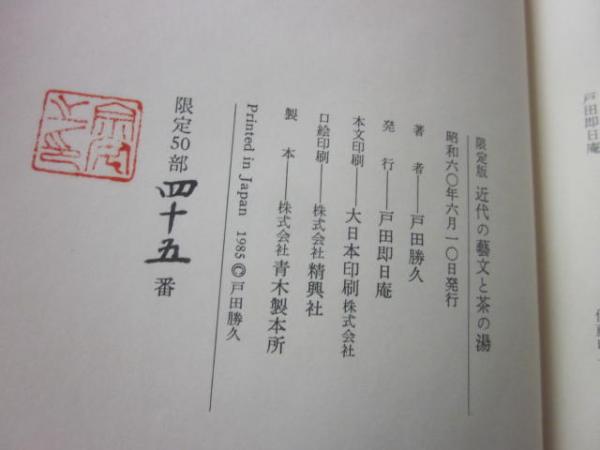 限定版 近代の藝文と茶の湯
昭和六〇年六月一〇日発行
著者――戸田勝久
発行――戸田即日庵
本文印刷――大日本印刷株式会社
口絵印刷――株式会社 精興社
製本――株式会社 青木製本所
Printed in Japan 1985 © 戸田勝久
限定50部 四十五 番
戸田即日庵